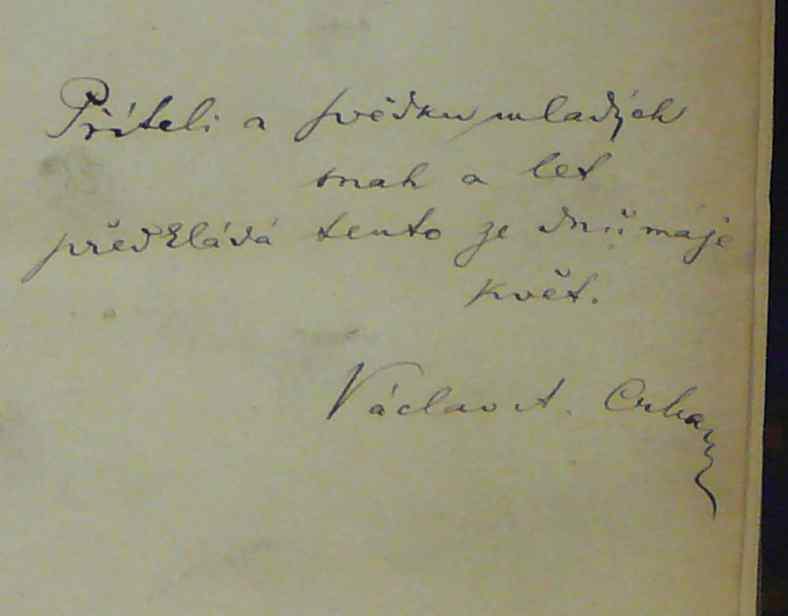 Příteli a svědku mladých
snah a let
předkládá tento ze dnů máje
květ.
Václav A. Crha